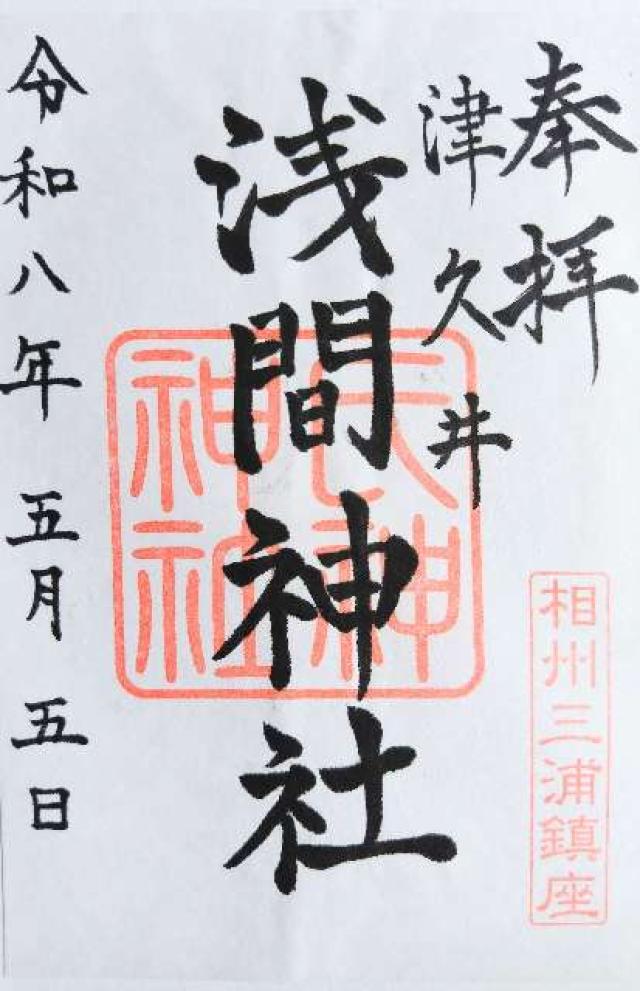 奉拝
津久井
浅間神社
天神
神社
相州三浦鎮座
令和八年五月五日